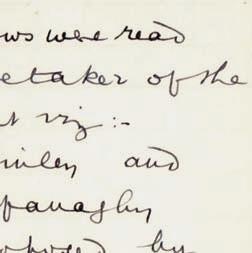 ws were read
etaker of the
t viz:-
inley and
fanaghy
by